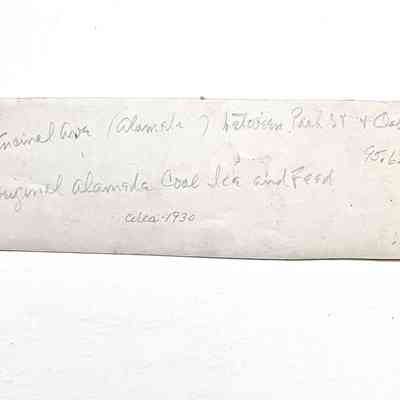 Encinal Ave (Alameda) between Park St + Oak
95.6
Original Alameda Coal Ice and Feed
circa 1930